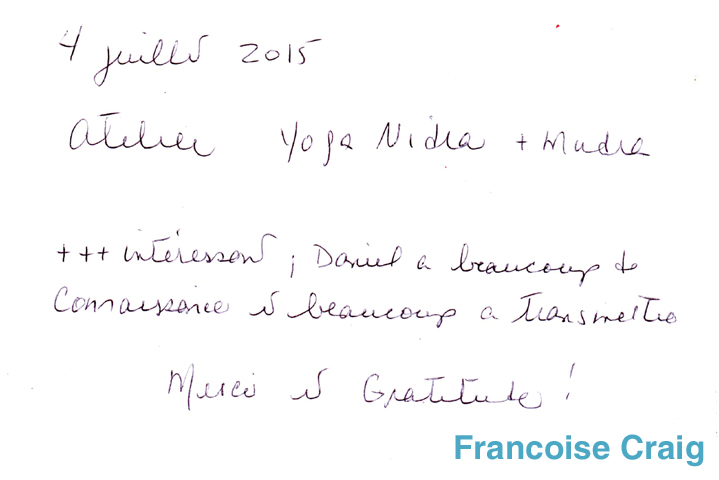 4 juillet 2015
Atelier Yoga Nidra + Mudra
+++ intéressant ; Daniel a beaucoup de
Connaissance et beaucoup a transmettre
Merci et Gratitude !
Francoise Craig